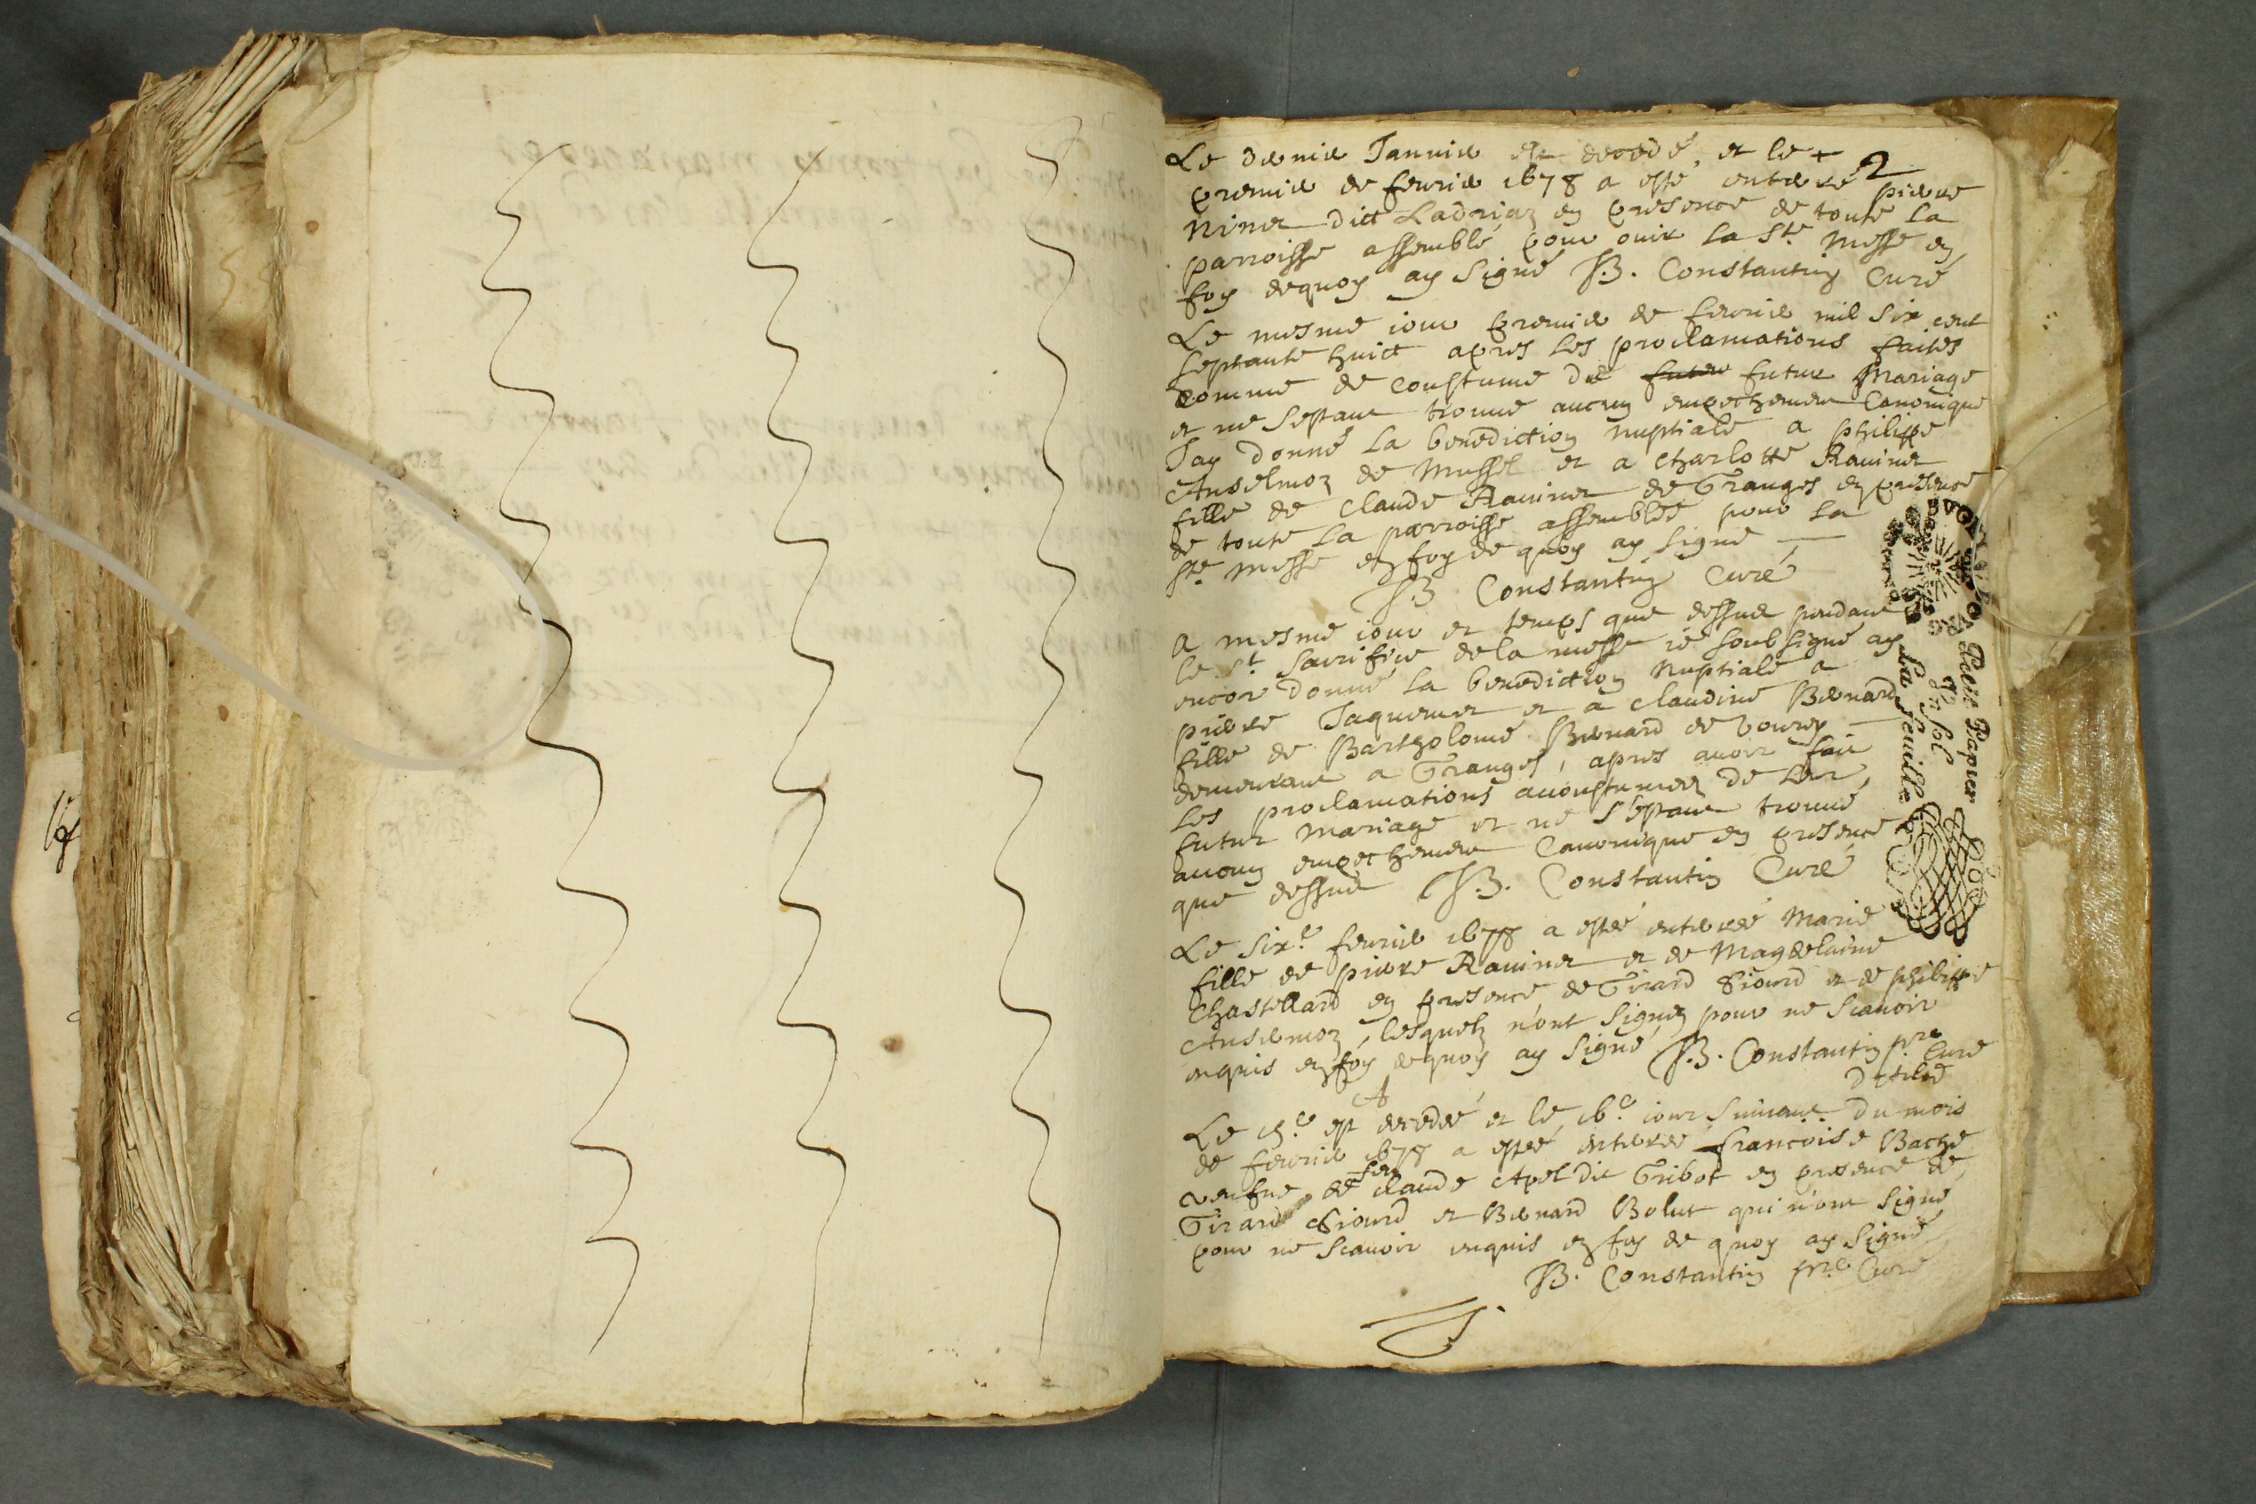 Le dernier Januier est decedé, et le +
premier de feurier 1678 a esté enterré pierre
Ninet dict Ladriaz en presence de toute la
parroisse assemblé, pour ouir la Ste Messe en
foy dequoy ay signé B. Constantin Curé
2
Le mesme iour premier de feurier mil six cent
septante huict apres les proclamations faites
comme de coustume de futur futur Mariage
et ne sestant trouué aucun empechement Canonique
Jay donné la benediction nuptiale a philippe
Anselmoz de Mussel et a charlotte Rauinet
fille de claude Rauinet de Granges en presence
de toute la parroisse assemblée pour la
Ste messe en foy de quoy ay signé
B. Constantin Curé
A mesme iour et temps que dessus pendant
le st sacrifice de la messe ie soubsigné ay
encor donné la benediction Nuptiale a
pierre Jaquemet et a claudine Bernard
fille de Bartholomé Bernard de
demeurant a Granges, apres auoir fait
les proclamations accoustumez de leur
futur mariage et ne s'estant trouué
aucun empechement Canonique en presence
que dessus B. Constantin Curé
Le sixe feurier 1678 a estée enterrée Marie
fille de pierre Rauinet et de Magdelaine
Chastellard en presence de Girard Siourd et de philippe
Anselmoz, lesquelz n'ont signez pour ne scauoir
enquis en foy dequoy ay signé B. Constantin pre Curé
Le est decedé, et le iour suiuant du mois
de feurier 1678 a estée enterrée francoise Bache
vefue de feu claude Apel dit Gribot en presence de
Girard Siourd et Bernard Bolut qui n'ont signé
pour ne scauoir enquis en foy de quoy ay signé
B. Constantin pre Curé
Petit Papier
Vn Sol
La feuille